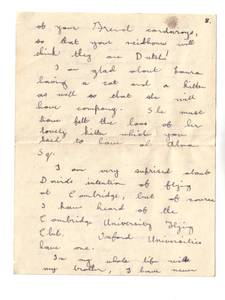 8.
of your Brend corduroys,
so that your neidhbors will
think they are Dutch!
I am glad about Laura
having a cat and a kitten
as well so that she will
have company. She must
have felt the loss of her
lovely kitten which you
used to have at Alma
Sq.
I am very suprised about
Davids intention of flying
at Cambridge, but of course
I have heard of the
Cambridge University Flying
Club. Oxford Universities
have one.
In my whole life with
my brother, I have never